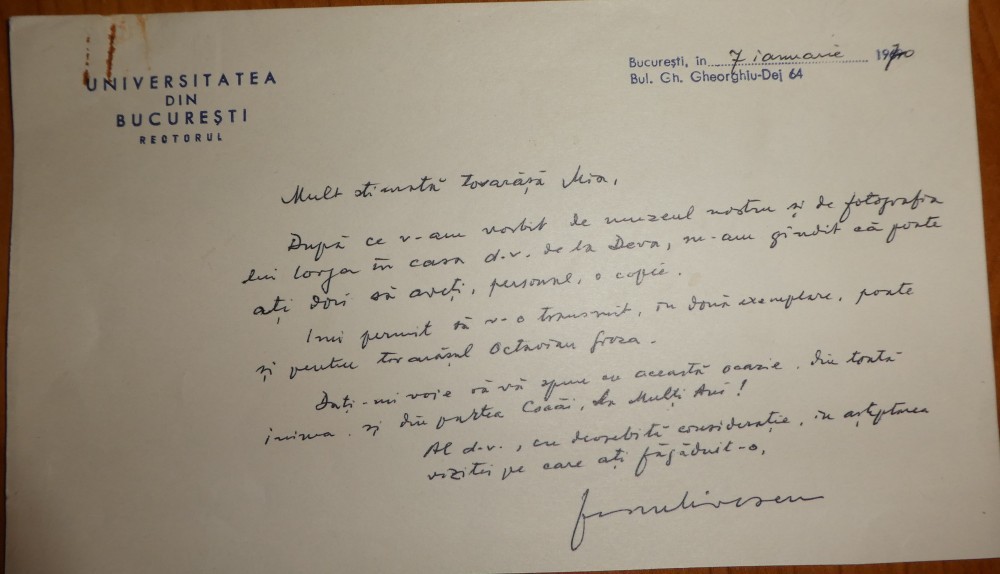 UNIVERSITATEA
DIN
BUCUREȘTI
RECTORUL
București, în 7 ianuarie 1970
Bul. Gh. Gheorghiu-Dej 64
Mult stimată tovarășă Mia,
După ce v-am vorbit de muzeul nostru și de fotografia
lui Iorga în casa d-v. de la Deva, m-am gîndit că poate
ați dori să aveți, personal, o copie.
Imi permit să v-o transmit, în două exemplare, poate
și pentru tovarășul Octavian Groza.
Dați-mi voie să vă spun cu această ocazie, din toată
inima, și din partea, La Mulți Ani!
Al d-v., cu deosebită considerație, în așteptarea
vizitei pe care ați făgăduit-o,